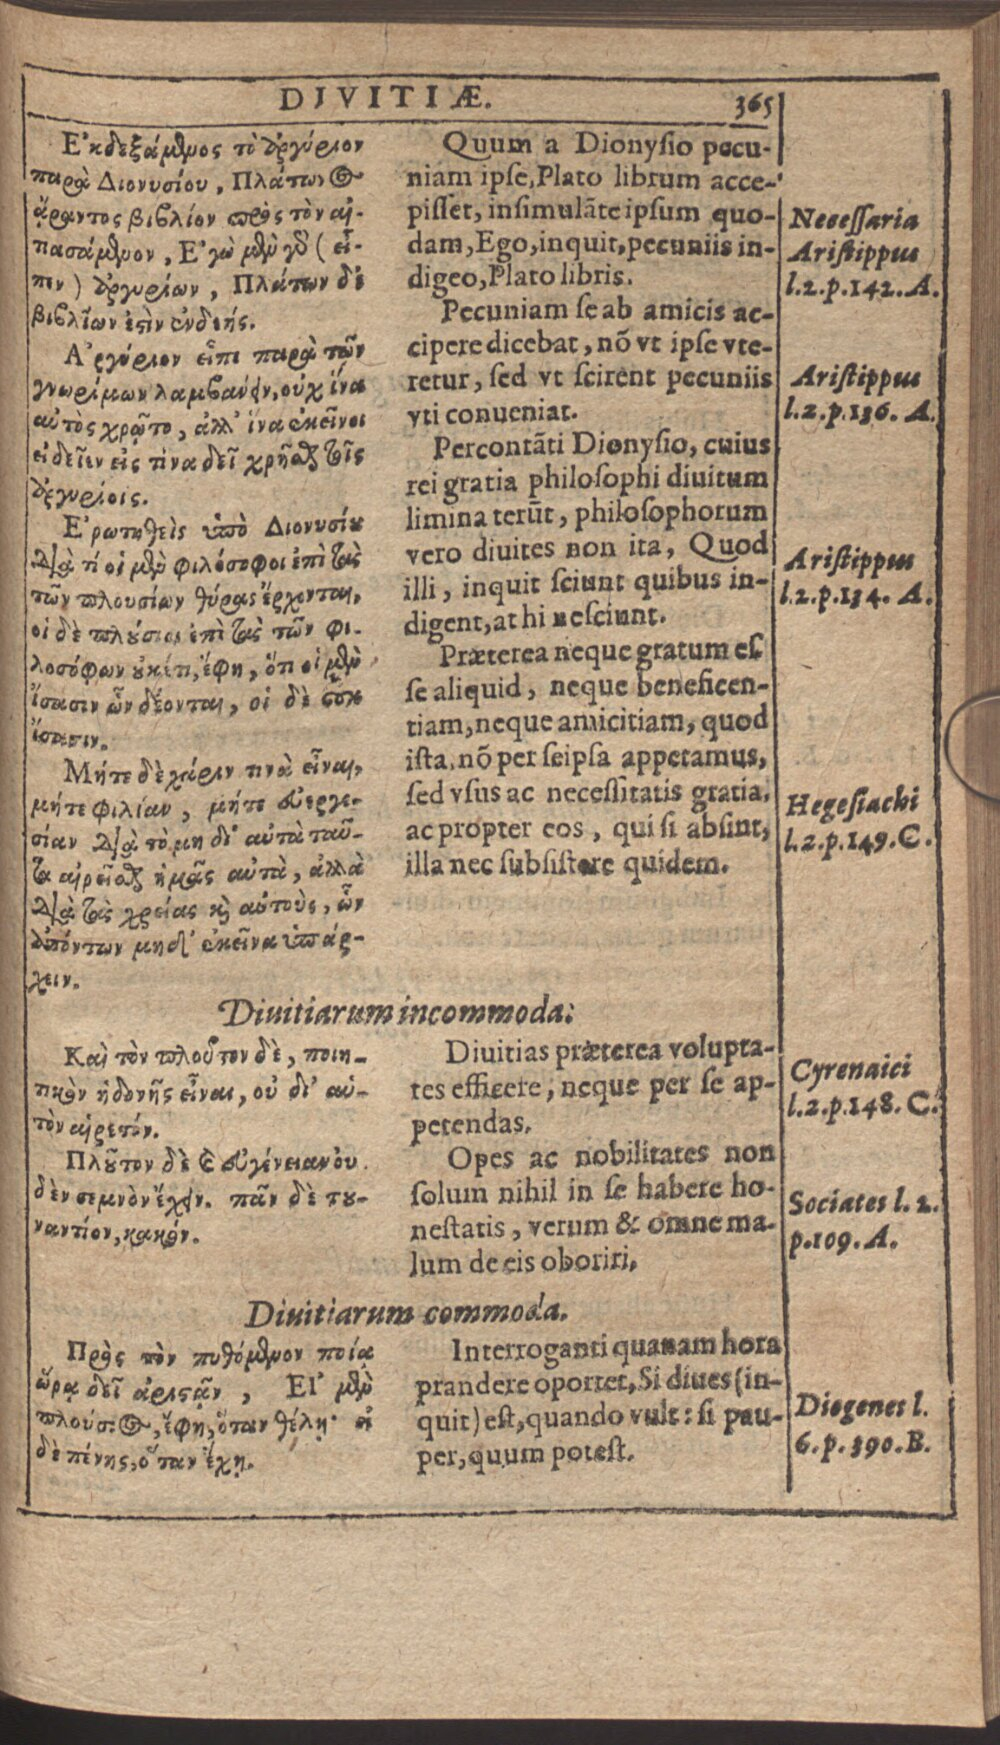 DIVITIÆ.
365
Ἐκδεξάμενος τὸ ἀργύριον
παρὰ Διονυσίου, Πλάτωνος
ἄραντος βιβλίον πρὸς τὸν αἰ-
τιασάμενον, Ἐγὼ μὲν γὸ (εἶ-
πεν) ἀργυρίων, Πλάτων δὲ
βιβλίων ἐστὶν ἐνδεής.
Ἀργύριον εἶπε παρὰ τῶν
γνωρίμων λαμβάνειν, οὐχ ἵνα
αὐτὸς χρῶτο, ἀλλ' ἵνα ἐκεῖνοι
εἰδεῖεν εἰς τίνα δεῖ χρῆσθαι τοῖς
ἀργυρίοις.
Ἐρωτηθεὶς ὑπὸ Διονυσίου
διὰ τί οἱ μὲν φιλόσοφοι ἐπὶ τὰς
τῶν πλουσίων θύρας ἔρχονται,
οἱ δὲ πλούσιοι ἐπὶ τὰς τῶν φι-
λοσόφων οὐκέτι, ἔφη, ὅτι οἱ μὲν
ἴσασιν ὧν δέονται, οἱ δὲ οὐκ
ἴσασιν.
Μήτε δὲ χάριν τινὰ εἶναι,
μήτε φιλίαν, μήτε εὐεργε-
σίαν διὰ τὸ μη δι' αὐτὰ ταῦ-
τα αἱρεῖσθαι ἡμᾶς αὐτὰ, ἀλλὰ
διὰ τὰς χρείας καὶ αὐτοὺς, ὧν
ἀπόντων μηδ' ἐκεῖνα ὑπάρ-
χειν.
Quum a Dionysio pecu-
niam ipse, Plato librum acce-
pisset, insimulãte ipsum quo-
dam, Ego, inquit, pecuniis in-
digeo, Plato libris.
Pecuniam se ab amicis ac-
cipere dicebat, nõ vt ipse vte-
retur, sed vt scirent pecuniis
vti conueniat.
Percontãti Dionysio, cuius
rei gratia philosophi diuitum
limina terũt, philosophorum
vero diuites non ita, Quod
illi, inquit sciunt quibus in-
digent, at hi nesciunt.
Præterea neque gratum es-
se aliquid, neque beneficen-
tiam, neque amicitiam, quod
ista, nõ per seipsa appetamus,
sed vsus ac necessitatis gratia,
ac propter eos, qui si absint,
illa nec subsistere quidem.
Necessaria
Aristippus
l.2.p.142.A.
Aristippus
l.2.p.136. A.
Aristippus
l.2.p.134. A.
Hegesiachi
l.2.p.149.C.
Diuitiarum incommoda:
Καὶ τὸν πλοῦτον δὲ, ποιη-
τικὸν ἡδονῆς εἶναι, οὐ δι' αὑ-
τὸν αἱρετόν.
Πλοῦτον δὲ καὶ εὐγένειαν οὐ-
δὲν σεμνὸν ἔχειν. πᾶν δὲ του-
ναντίον, κακόν.
Diuitias præterea volupta-
tes efficere, neque per se ap-
petendas.
Opes ac nobilitates non
solum nihil in se habere ho-
nestatis, verum & omne ma-
lum de eis oboriri.
Cyrenaici
l.2.p.148. C.
Sociates l. 2.
p.109. A.
Diuitiarum commoda.
Πρὸς τὸν πυθόμενον ποία
ὥρα δεῖ ἀριστᾶν, Εἰ μὲν
πλούσιος, ἔφη, ὅταν θέλῃ· εἰ
δὲ πένης, ὅταν ἔχῃ.
Interroganti quanam hora
prandere oportet, Si diues (in-
quit) est, quando vult: si pau-
per, quum potest.
Diogenes l.
6.p.390.B.